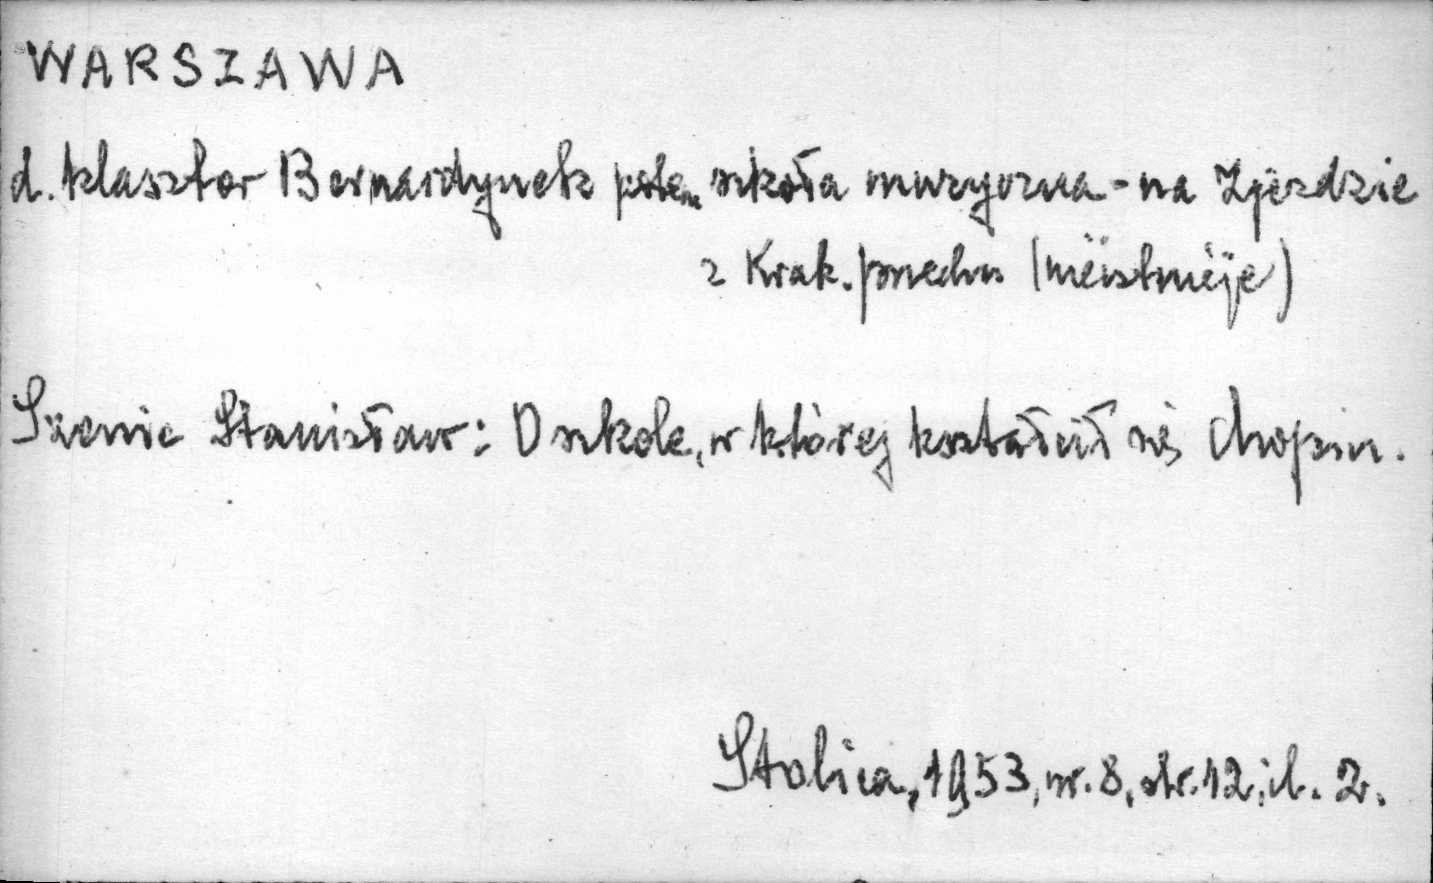 WARSZAWA
d. klasztor Bernardynek potem szkoła muzyczna - na Zjeździe
z Krak. przedm (nieistnieje)
Szenic Stanisław: O szkole, w której kształcił się Chopin.
Stolica, 1953, nr. 8, str. 12, il. 2.